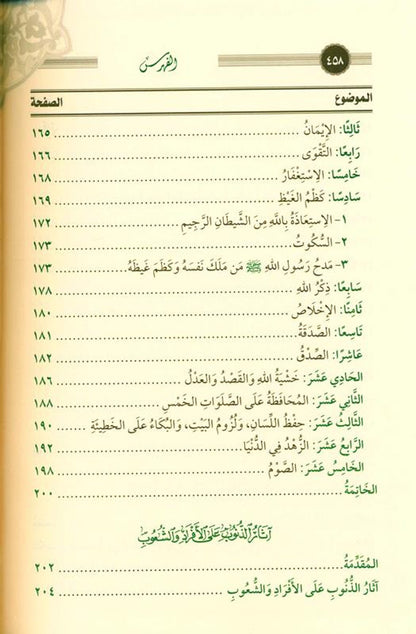 ٤٥٨
الفهرس
الموضوع الصفحة
ثَالِثًا: الإِيْمَانُ ١٦٥
رَابِعًا: التَّقْوَى ١٦٦
خَامِسًا: الاِسْتِغْفَارُ ١٦٨
سَادِسًا: كَظْمُ الغَيْظِ ١٦٩
١- الاِسْتِعَاذَةُ بِاللهِ مِنَ الشَّيْطَانِ الرَّجِيمِ ١٧٢
٢- السُّكُوتُ ١٧٣
٣- مَدحُ رَسُولِ اللهِ ﷺ مَن مَلَكَ نَفسَهُ وَكَظَمَ غَيظَهُ ١٧٣
سَابِعًا: ذِكْرُ اللهِ ١٧٨
ثَامِنًا: الإِخْلَاصُ ١٨٠
تَاسِعًا: الصَّدَقَةُ ١٨١
عَاشِرًا: الصِّدْقُ ١٨٢
الحَادِي عَشَرَ: خَشْيَةُ اللهِ وَالقَصْدُ وَالعَدْلُ ١٨٦
الثَّانِي عَشَرَ: المُحَافَظَةُ عَلَى الصَّلَوَاتِ الخَمْسِ ١٨٨
الثَّالِثُ عَشَرَ: حِفْظُ اللِّسَانِ، وَلُزُومُ البَيْتِ، وَالبُكَاءُ عَلَى الخَطِيئَةِ ١٩٠
الرَّابِعُ عَشَرَ: الزُّهْدُ فِي الدُّنْيَا ١٩٢
الخَامِسُ عَشَرَ: الصَّوْمُ ١٩٨
الخَاتِمَةُ ٢٠٠
آثَارُ الذُّنُوبِ عَلَى الأَفْرَادِ وَالشُّعُوبِ
المُقَدِّمَةُ ٢٠٢
آثَارُ الذُّنُوبِ عَلَى الأَفْرَادِ وَالشُّعُوبِ ٢٠٤